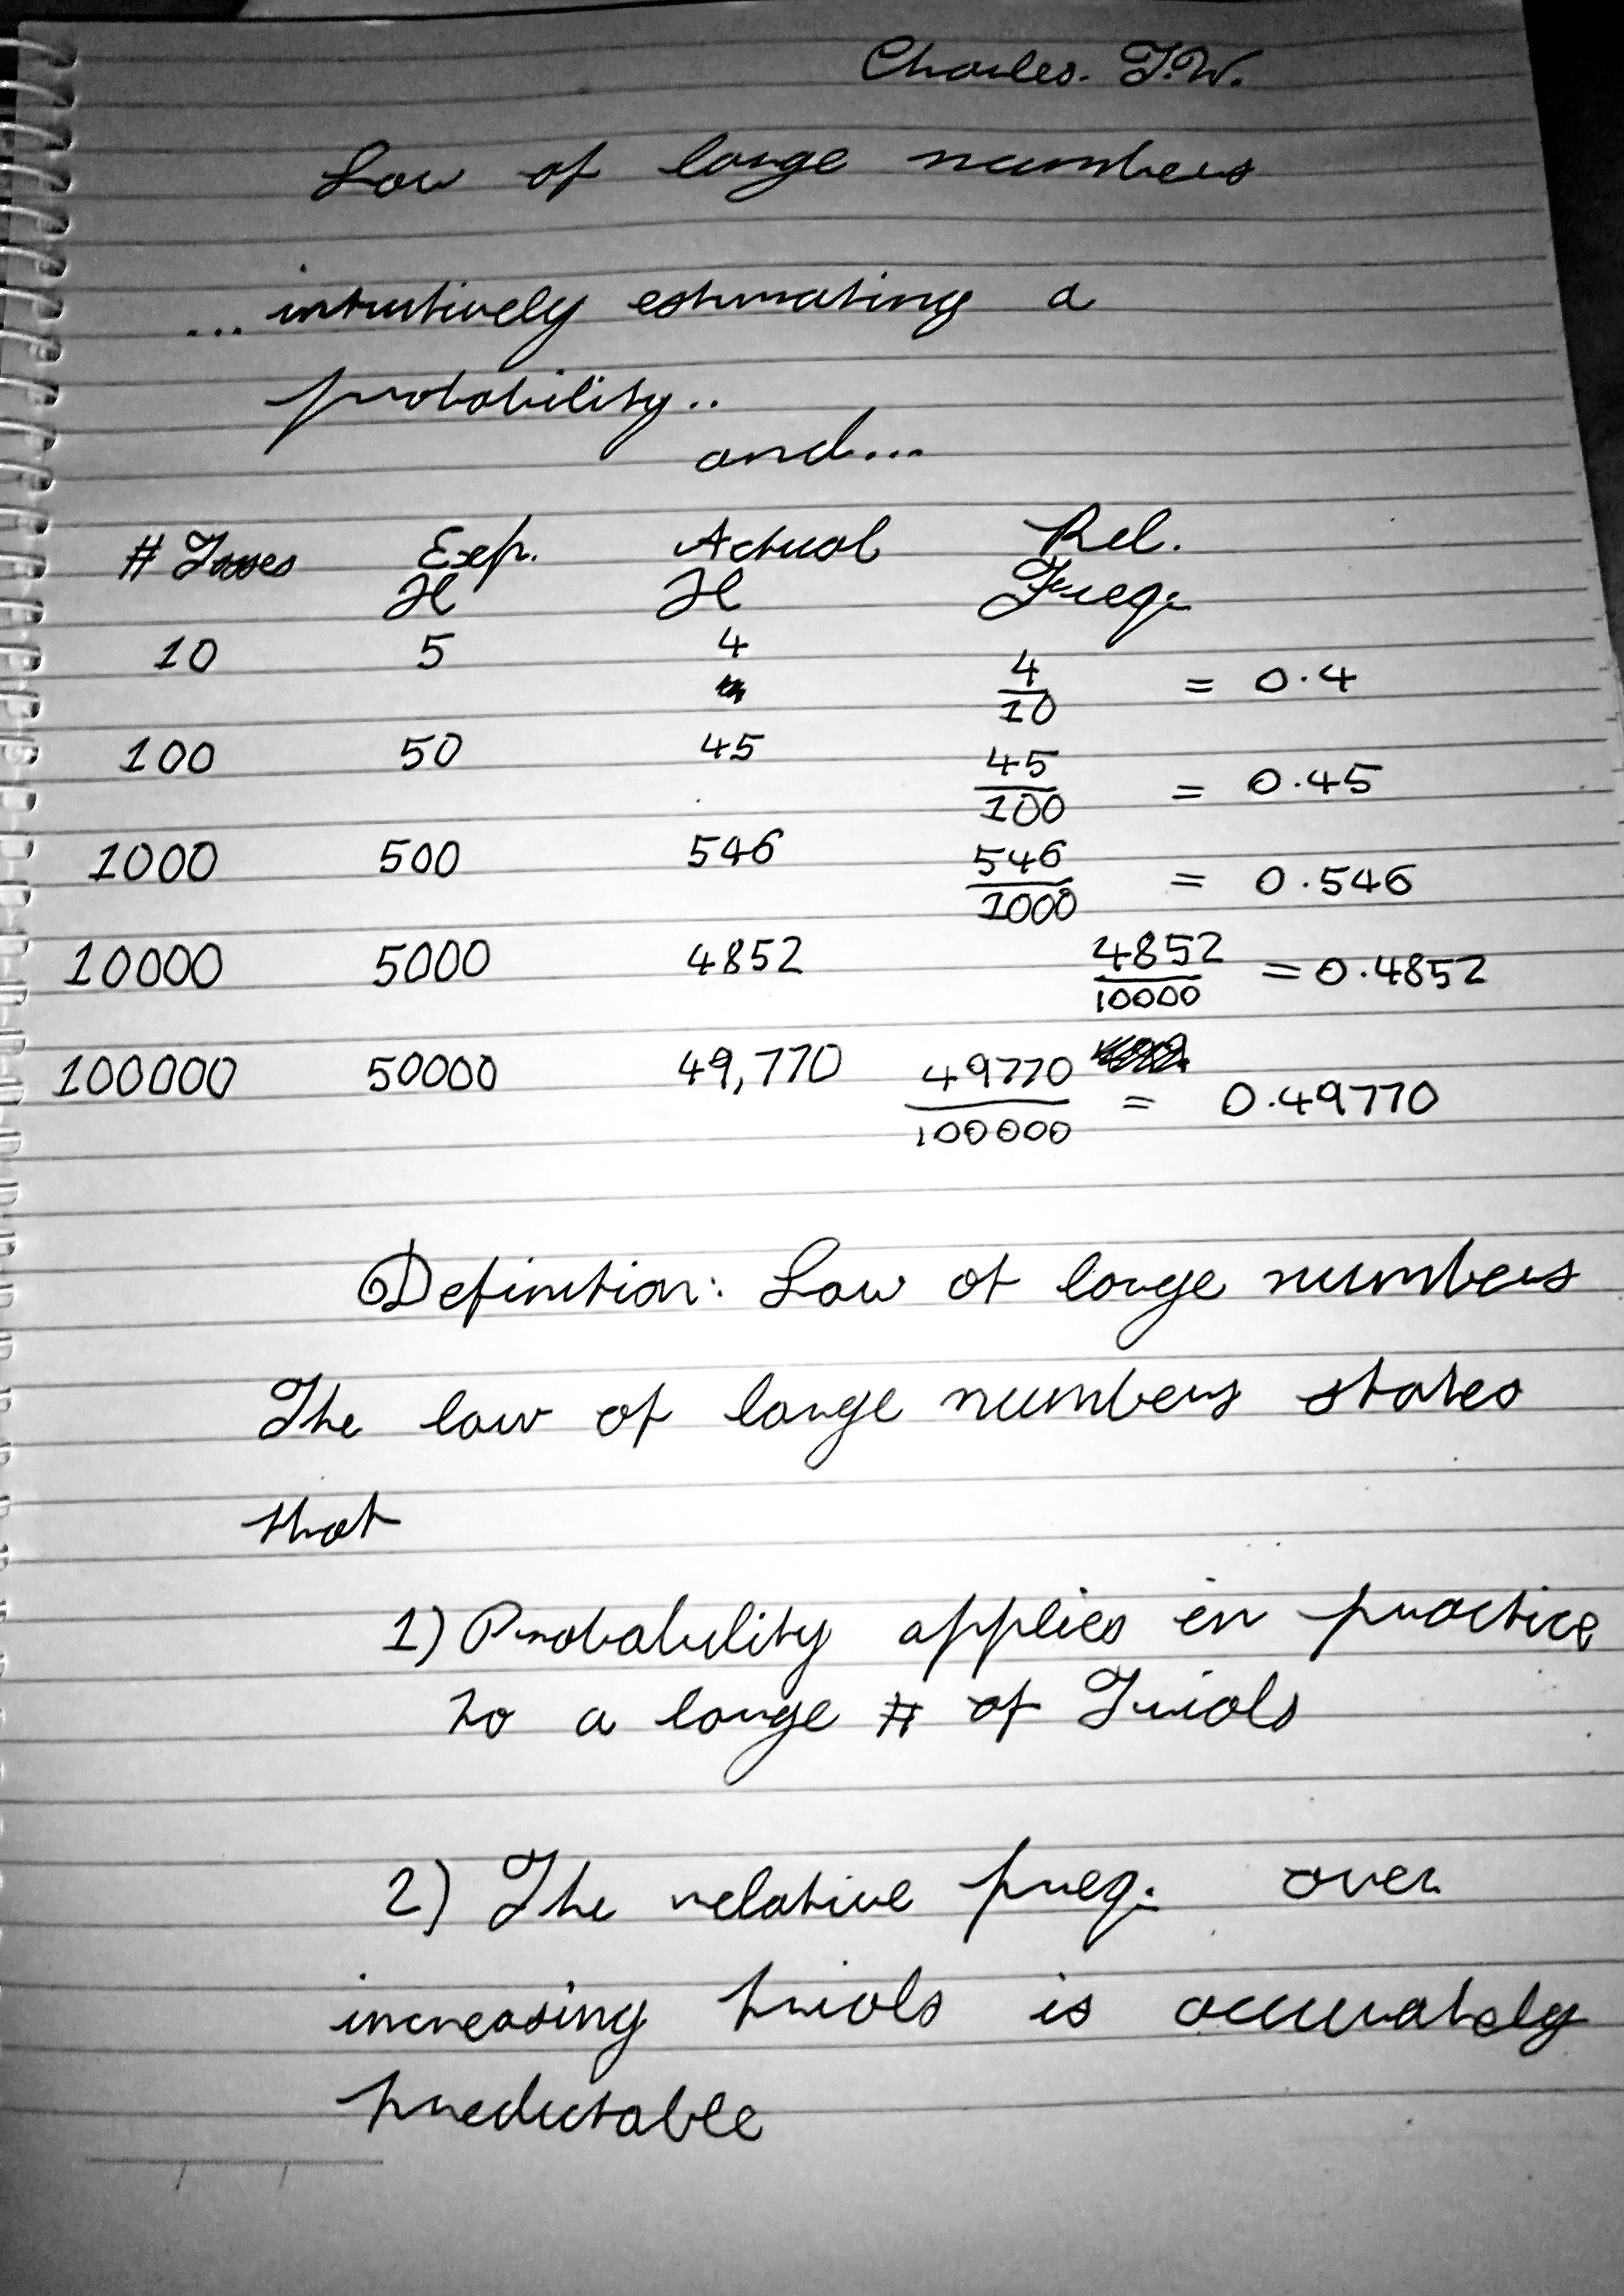 Charles. T.W.
Law of large numbers
... intuitively estimating a
probability..
and...
# Tosses Exp. Actual Rel.
H H Freq.
10 5 4 4/10 = 0.4
100 50 45 45/100 = 0.45
1000 500 546 546/1000 = 0.546
10000 5000 4852 4852/10000 = 0.4852
100000 50000 49,770 49770/100000 = 0.49770
Definition: Law of large numbers
The law of large numbers states
that
1) Probability applies in practice
to a large # of Trials
2) The relative freq. over
increasing trials is accurately
predictable